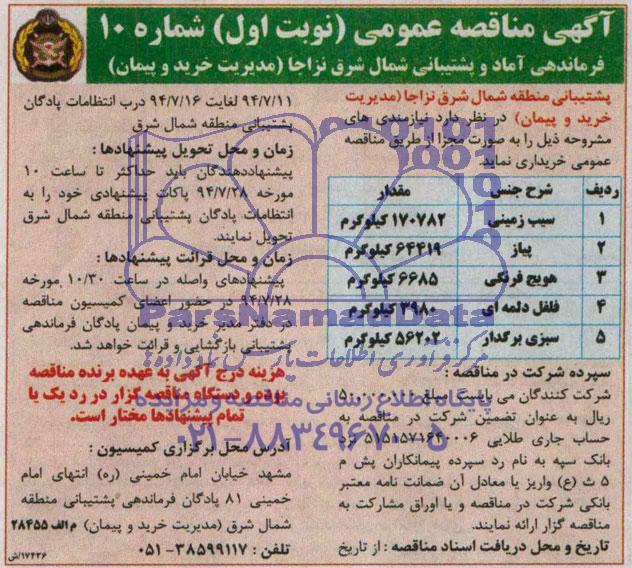 آگهی مناقصه عمومی (نوبت اول) شماره ۱۰
فرماندهی آماد و پشتیبانی شمال شرق نزاجا (مدیریت خرید و پیمان)
پشتیبانی منطقه شمال شرق نزاجا (مدیریت
خرید و پیمان) در نظر دارد نیازمندی های
مشروحه ذیل را به صورت مجزا از طریق مناقصه
عمومی خریداری نماید.
ردیف شرح جنسی مقدار
۱ سیب زمینی ۱۷۰۷۸۲ کیلوگرم
۲ پیاز ۶۴۴۱۹ کیلوگرم
۳ هویج فرنگی ۶۶۸۵ کیلوگرم
۴ فلفل دلمه ای ۳۹۸۰ کیلوگرم
۵ سبزی برگدار ۵۶۲۰۲ کیلوگرم
سپرده شرکت در مناقصه :
شرکت کنندگان می بایست مبلغ
ریال به عنوان تضمین شرکت در مناقصه به
حساب جاری طلایی نزد
بانک سپه به نام رد سپرده پیمانکاران پش م
۵ ث (ع) واریز یا معادل آن ضمانت نامه معتبر
بانکی شرکت در مناقصه و یا اوراق مشارکت به
مناقصه گزار ارائه نمایند.
تاریخ و محل دریافت اسناد مناقصه : از تاریخ
۹۴/۷/۱۱ لغایت ۹۴/۷/۱۶ درب انتظامات پادگان
پشتیبانی منطقه شمال شرق
زمان و محل تحویل پیشنهادها :
پیشنهاددهندگان باید حداکثر تا ساعت ۱۰
مورخه ۹۴/۷/۲۸ پاکات پیشنهادی خود را به
انتظامات پادگان پشتیبانی منطقه شمال شرق
تحویل نمایند.
زمان و محل قرائت پیشنهادها :
پیشنهادهای واصله در ساعت ۱۰/۳۰ مورخه
۹۴/۷/۲۸ در حضور اعضای کمیسیون مناقصه
در دفتر مدیر خرید و پیمان پادگان فرماندهی
پشتیبانی بازگشایی و قرائت خواهد شد.
هزینه درج آگهی به عهده برنده مناقصه
بوده و دستگاه مناقصه گزار در رد یک یا
تمام پیشنهادها مختار است.
آدرس محل برگزاری کمیسیون :
مشهد خیابان امام خمینی (ره) انتهای امام
خمینی ۸۱ پادگان فرماندهی پشتیبانی منطقه
شمال شرق (مدیریت خرید و پیمان) م الف ۲۸۴۵۵
تلفن : ۳۸۵۹۹۱۱۷-۰۵۱
۱۷۴۳۶/ش
ParsNamadData
مرکز فرآوری اطلاعات پارس نماد داده ها
پایگاه اطلاع رسانی مناقصه و مزایده
۰۲۱-۸۸۳۴۹۶۷۰-۵